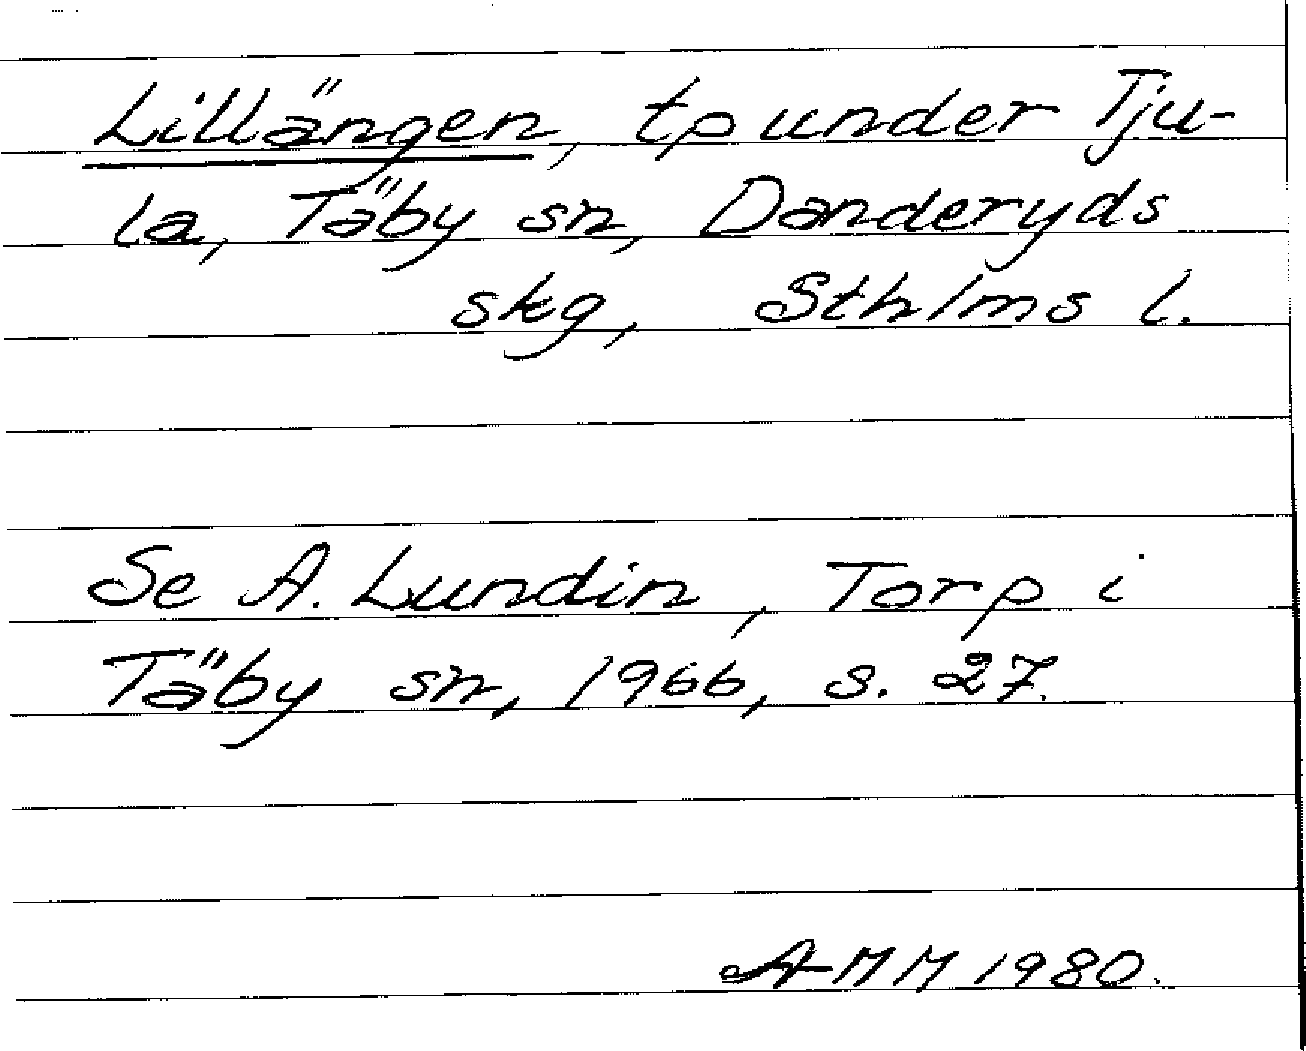 Lillängen, tp under Tju-
la, Täby sn, Danderyds
skg, Sthlms l.
Se A. Lundin, Torp i
Täby sn, 1966, s. 27.
AMM 1980.